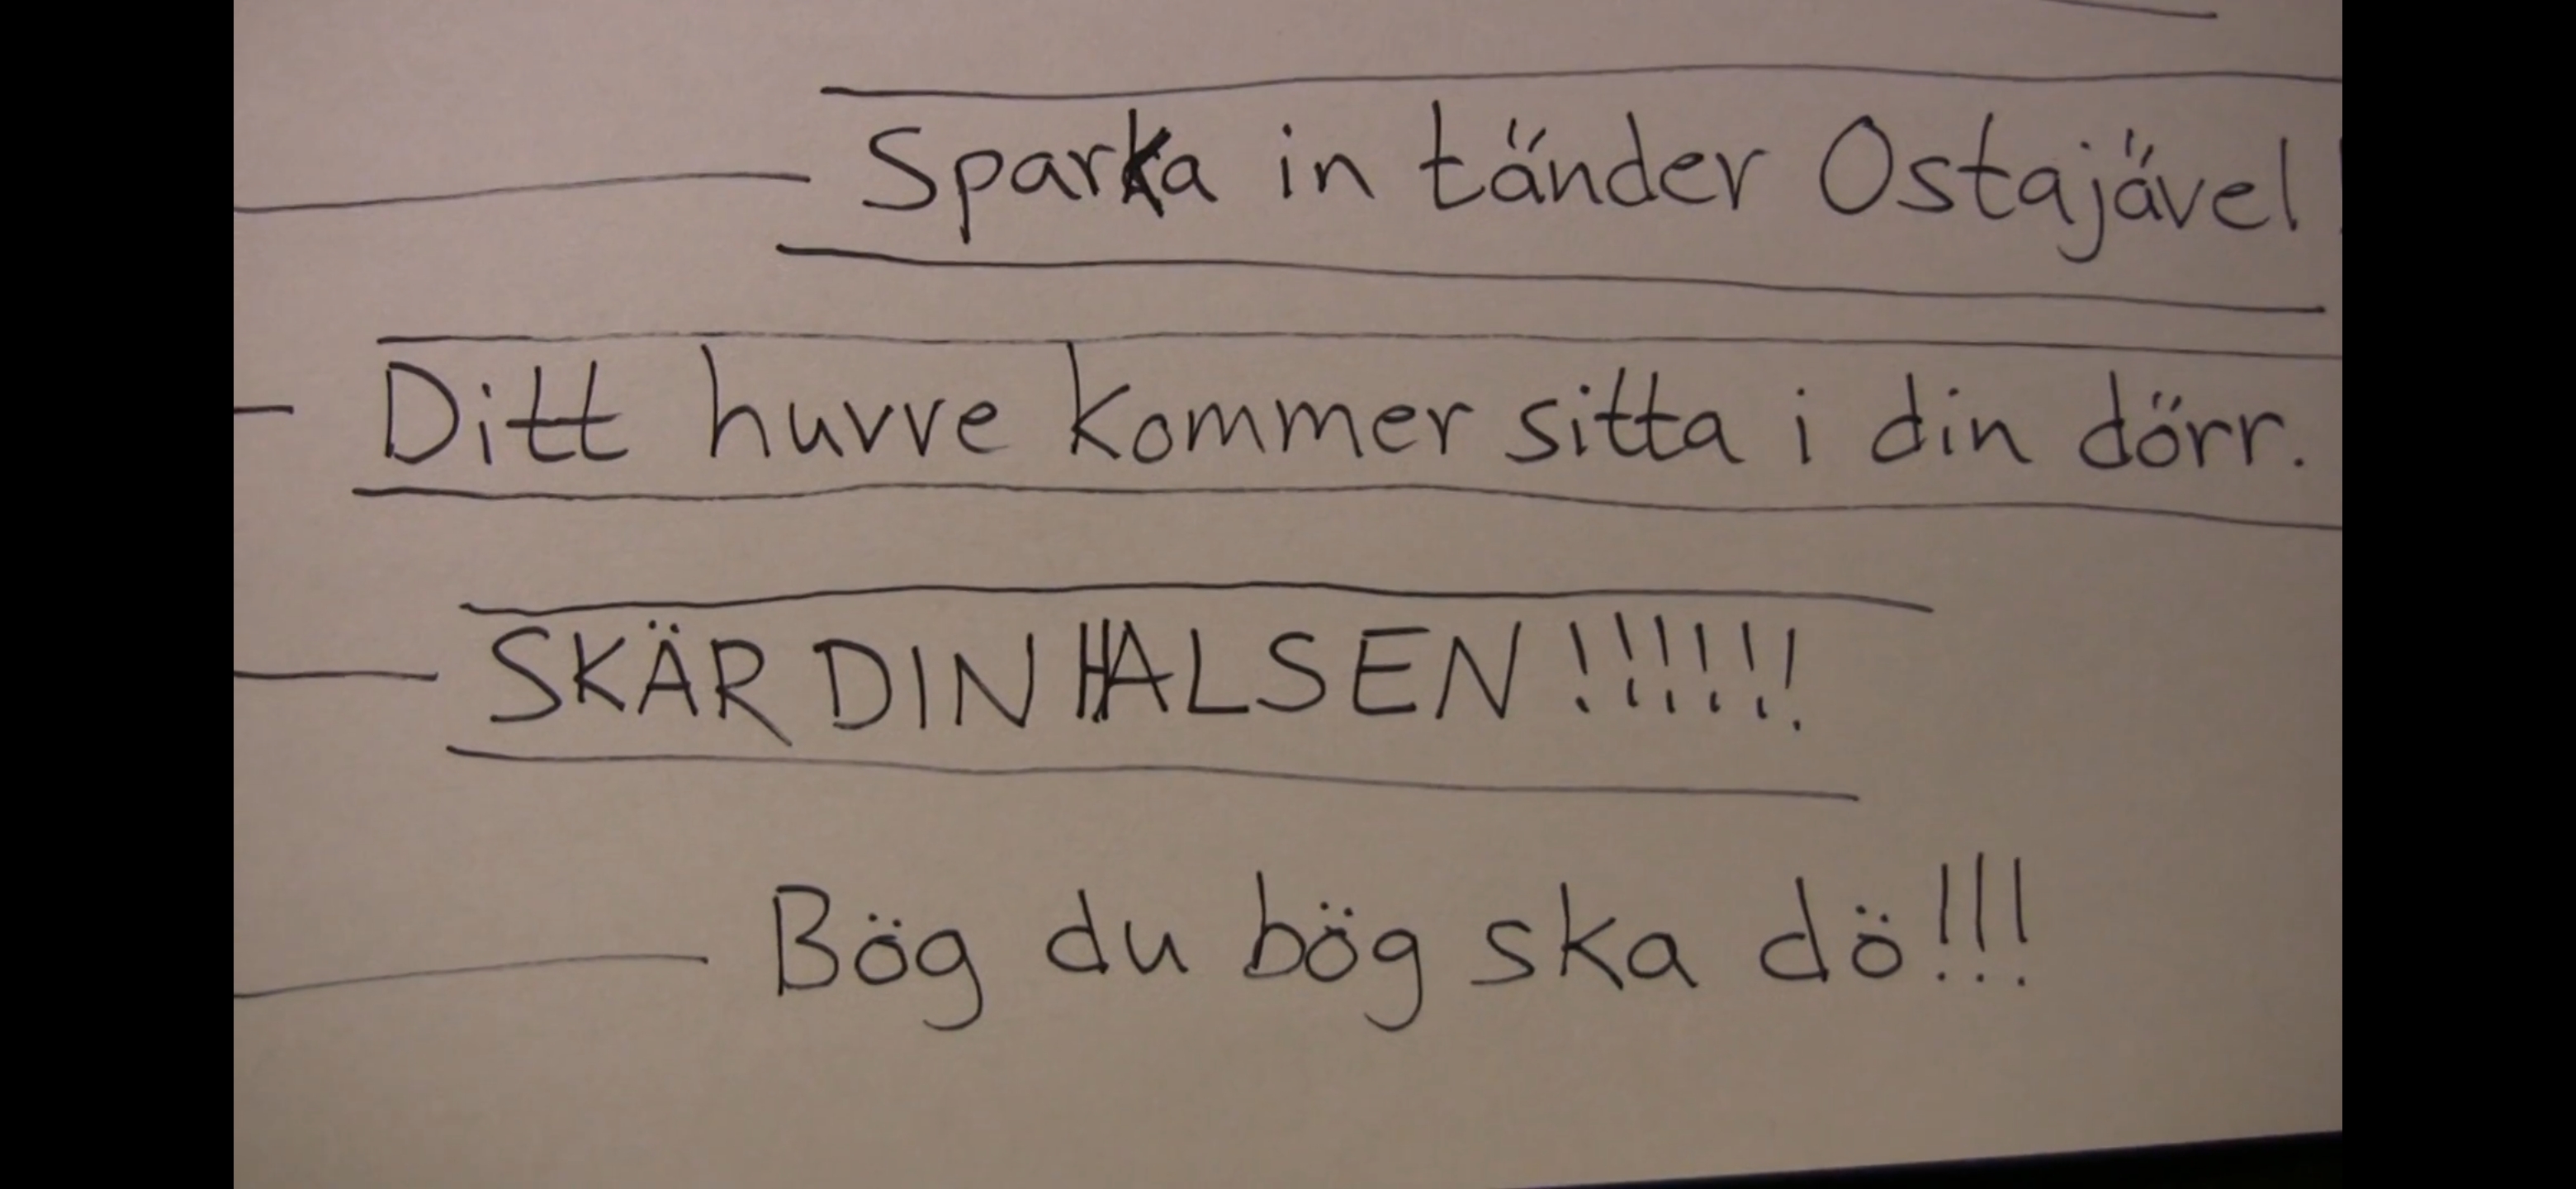 Sparka in tänder Ostajävel!
Ditt huvve kommer sitta i din dörr.
SKÄR DIN HALSEN!!!!!!
Bög du bög ska dö!!!